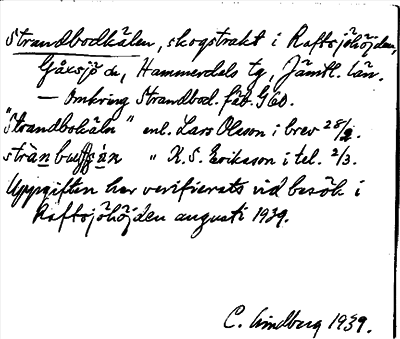 Strandbodkälen, skogstrakt i Raftsjöhöjden,
Gåxsjö de, Hammerdals tg, Jämtl. län.
— Omkring Strandbod. fäb. G60.
"Strandbokäln" enl. Lars Olsson i brev 28/2.
" K. S. Eriksson i tel. 2/3.
Uppgiften har verifierats vid besök i
Raftsjöhöjden augusti 1939.
C. Lindberg 1939.